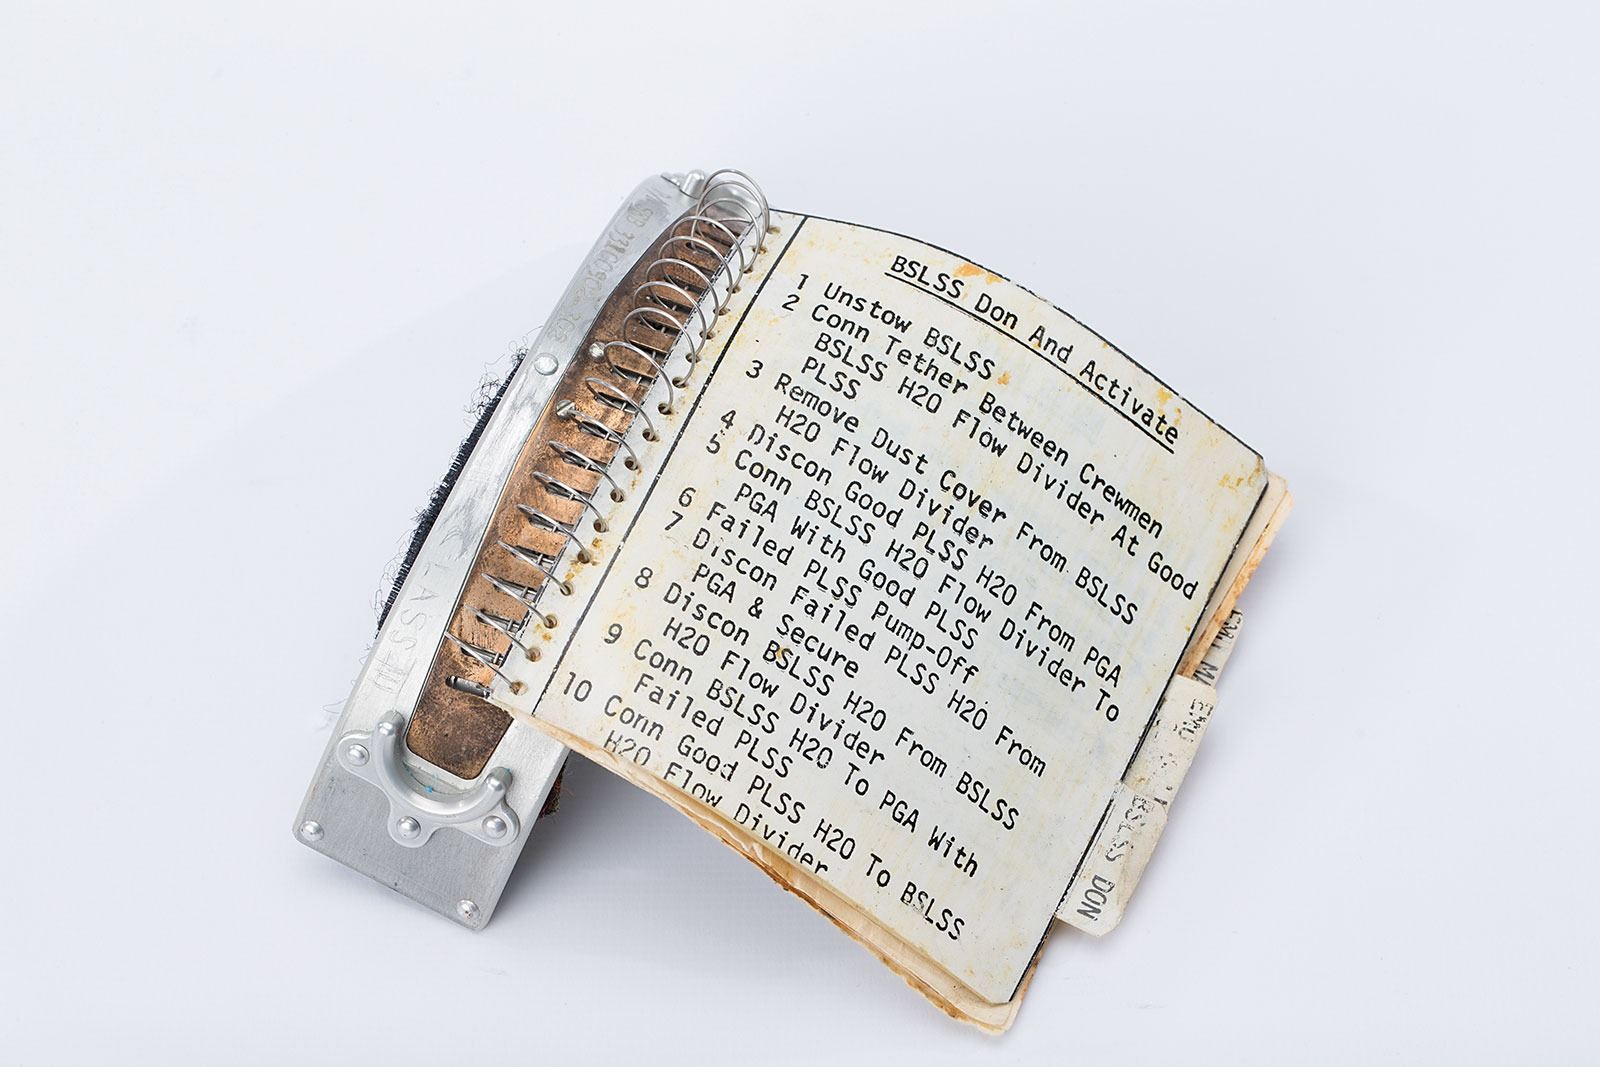 BSLSS Don And Activate
1 Unstow BSLSS
2 Conn Tether Between Crewmen
BSLSS H2O Flow Divider At Good
PLSS
3 Remove Dust Cover From BSLSS
H2O Flow Divider
4 Discon Good PLSS H2O From PGA
5 Conn BSLSS H2O Flow Divider To
PGA With Good PLSS
6 Failed PLSS Pump-Off
7 Discon Failed PLSS H2O From
PGA & Secure
8 Discon BSLSS H2O From BSLSS
H2O Flow Divider
9 Conn BSLSS H2O To PGA With
Failed PLSS
10 Conn Good PLSS H2O To BSLSS
H2O Flow Divider
EMU
BSLSS DON
CLASS III